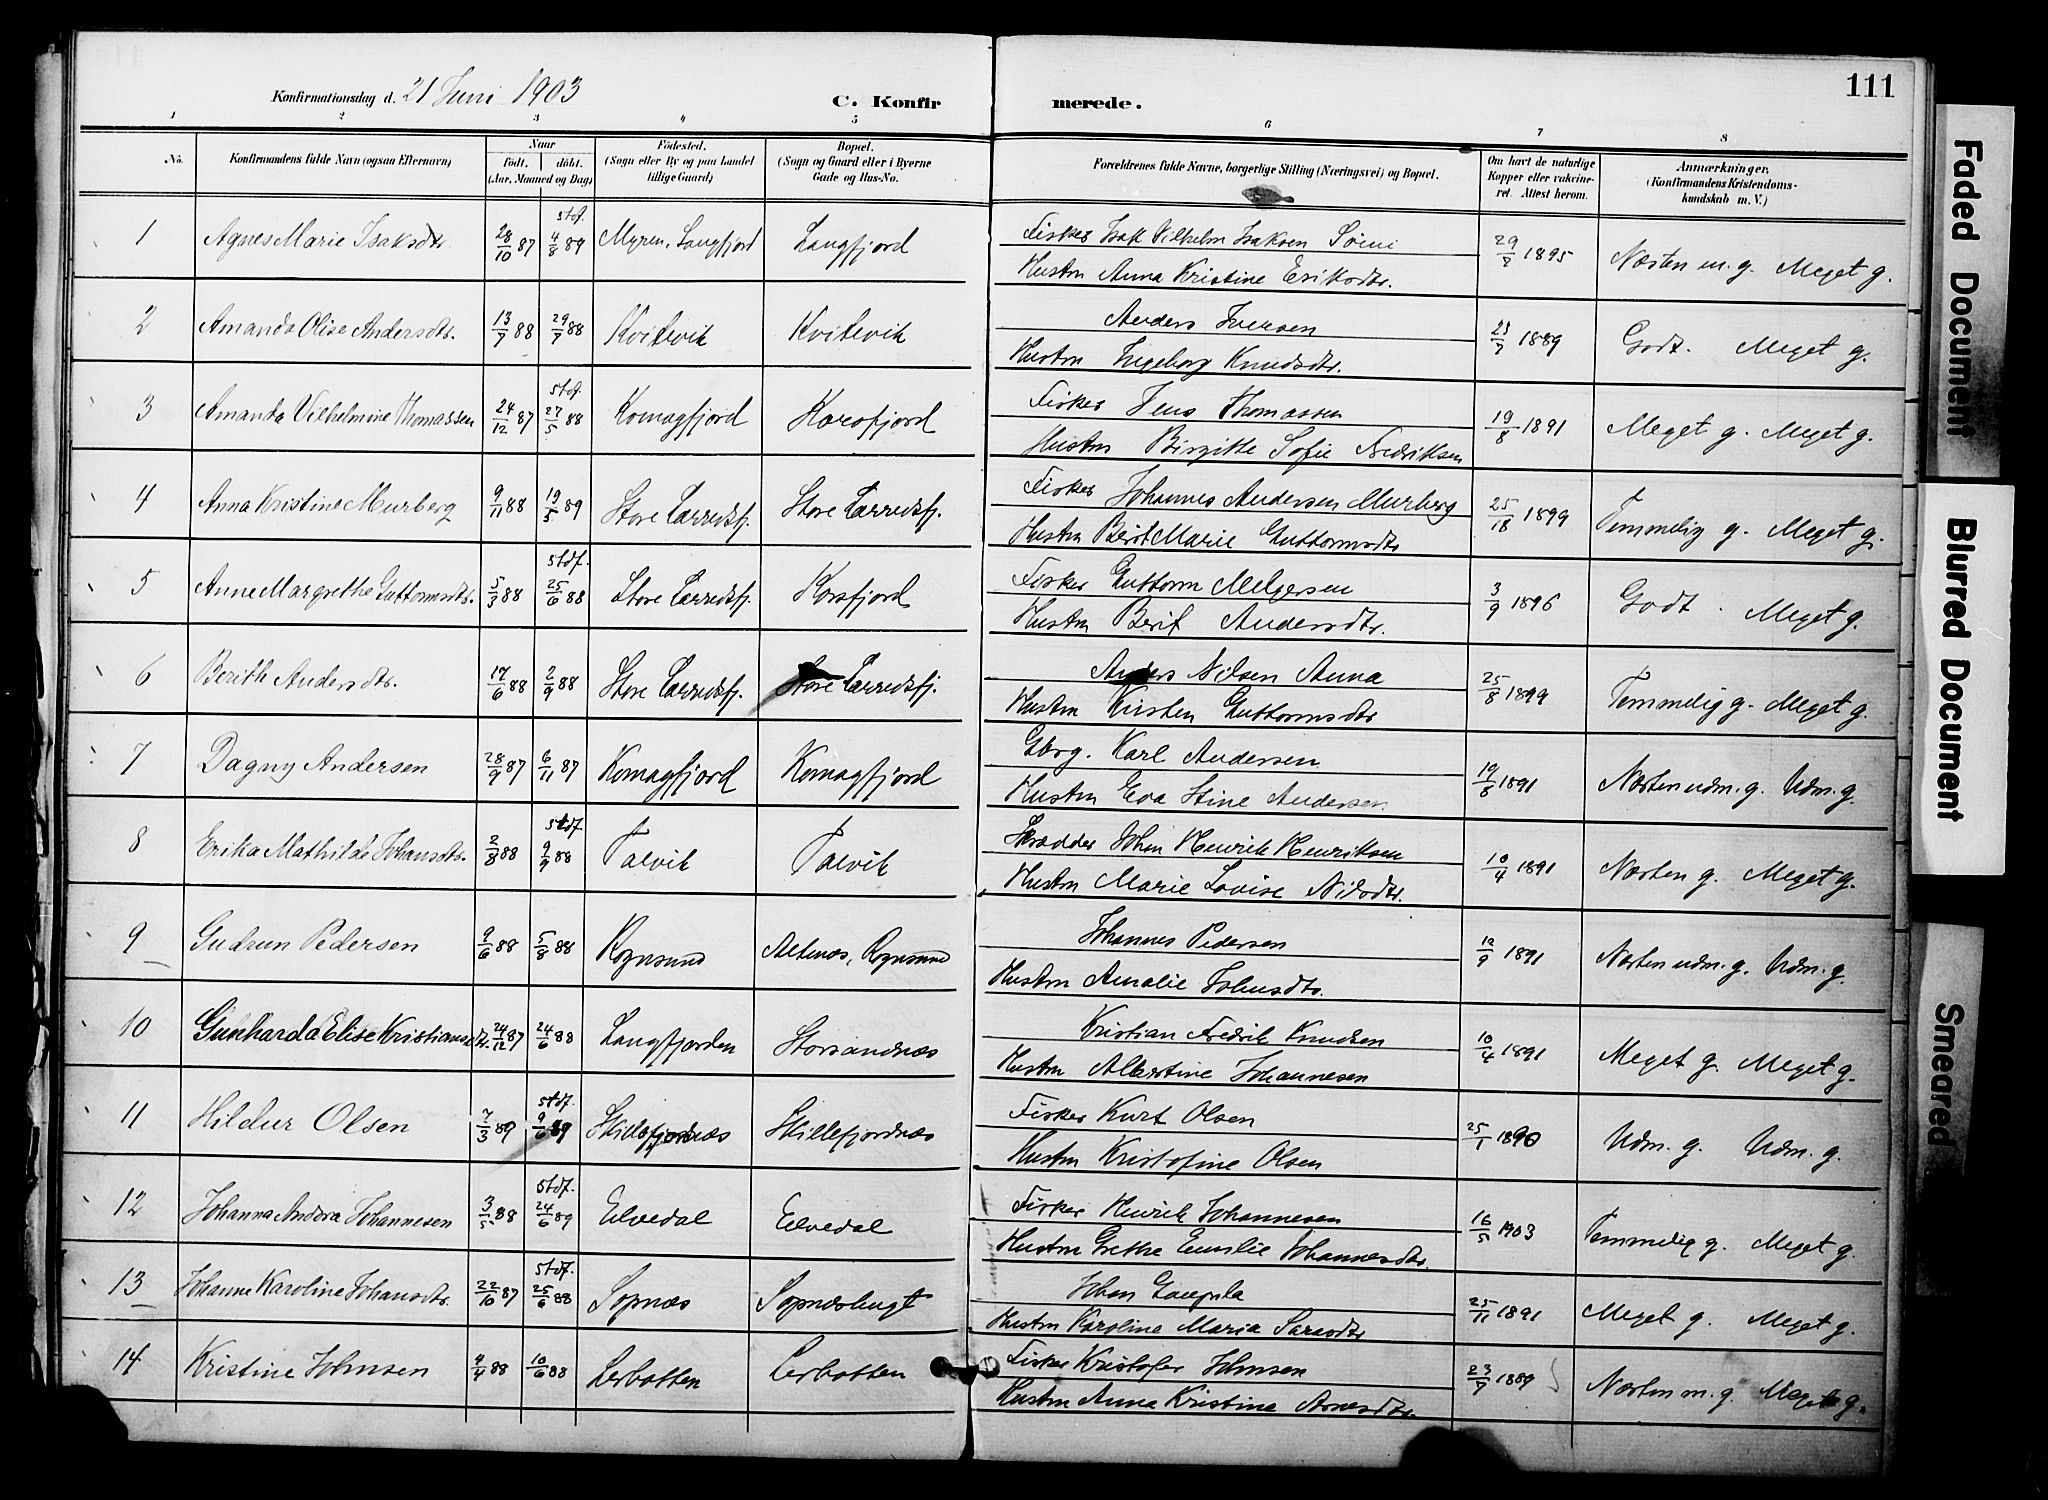 111
Konfirmationsdag d. 21 Juni 1903
C. Konfirmerede.
1 2 3 4 5 6 7 8
No. Konfirmandens fulde Navn (ogsaa Efternavn) Naar født. døbt. (Aar, Maaned og Dag) Fødested. (Sogn eller By og paa Landet tillige Gaard) Bopæl. (Sogn og Gaard eller i Byerne Gade og Hus-No. Forældrenes fulde Navne, borgerlige Stilling (Næringsvei) og Bopæl. Om havt de naturlige Kopper eller vakcineret. Attest herom. Anmærkninger. (Konfirmandens Kristendomskundskab m. V.)
1 Agnes Marie Isaksdtr. 28/10 87 stdf. 4/8 89 Myren, Langfjord Langfjord Fisker Isak Vilhelm Isaksen 29/7 1895 Næsten m. g. Meget g.
Hustru Anna Kristine Eriksdtr.
2 Amanda Olise Andersdtr. 13/7 88 29/7 88 Kvitevik Kvitevik Anders Iversen 23/7 1889 Godt. Meget g.
Hustru Ingeborg Knudsdtr.
3 Amanda Vilhelmine Thomassen 24/12 87 stdf. 27/5 88 Komagfjord Korsfjord Fisker Jens Thomassen 19/8 1891 Meget g. Meget g.
Hustru Birgitte Sofie Fredriksen
4 Anna Kristine Murberg 9/11 88 19/5 89 Store Lerredsfj. Store Lerredsfj. Fisker Johannes Andersen Murberg 25/18 1899 Temmelig g. Meget g.
Hustru Berit Marie Guttormsdtr
5 Anne Margrethe Guttormsdtr. 5/3 88 stdf. 25/6 88 Store Lerredsfj. Korsfjord Fisker Guttorm Melgersen 3/9 1896 Godt. Meget g.
Hustru Berit Andersdtr.
6 Berith Andersdtr. 17/6 88 2/9 88 Store Lerredsfj. Store Lerredsfj. Anders Nilsen Anna 25/8 1899 Temmelig g. Meget g.
Hustru Kirsten Guttormsdtr
7 Dagny Andersen 28/9 87 6/11 87 Komagfjord Komagfjord Gbrg. Karl Andersen 19/8 1891 Næsten udm. g. Udm. g.
Hustru Eva Stine Andersen
8 Erika Mathilde Johansdtr. 2/8 88 stdf. 9/9 88 Talvik Talvik Skrædder Johan Henrik Henriksen 10/4 1891 Næsten g. Meget g.
Hustru Marie Lovise Nilsdtr.
9 Gudrun Pedersen 9/6 88 5/8 88 Rognsund Altenes, Rognsund Johannes Pedersen 12/9 1891 Næsten udm. g. Udm. g.
Hustru Amalie Johnsdtr.
10 Gunharda Elise Kristiansdtr. 24/12 87 24/6 88 Langfjorden Storsandnæs Kristian Fredrik Knudsen 10/4 1891 Meget g. Meget g.
Hustru Albertine Johannesen
11 Hildur Olsen 7/3 89 stdf. 9/6 89 Skillefjordnæs Skillefjordnæs Fisker Kurt Olsen 25/1 1890 Udm. g. Udm. g.
Hustru Kristofine Olsen
12 Johanna Andrea Johannesen 3/5 88 stdf. 24/6 89 Eilvedal Eilvedal Fisker Henrik Johannesen 16/5 1903 Temmelig g. Meget g.
Hustru Grethe Emilie Johannesdtr.
13 Johanne Karoline Johansdtr. 22/10 87 stdf. 25/6 88 Sopnæs Sopnæsbugt Johan Gaupula 25/11 1891 Meget g. Meget g.
Hustru Karoline Maria Larsdtr
14 Kristine Johnsen 4/4 88 10/6 88 Lerbotten Lerbotten Fisker Kristofer Johnsen 23/7 1889 Næsten m. g. Meget g.
Hustru Anna Kristine Arnesdtr.
Faded Document
Blurred Document
Smeared